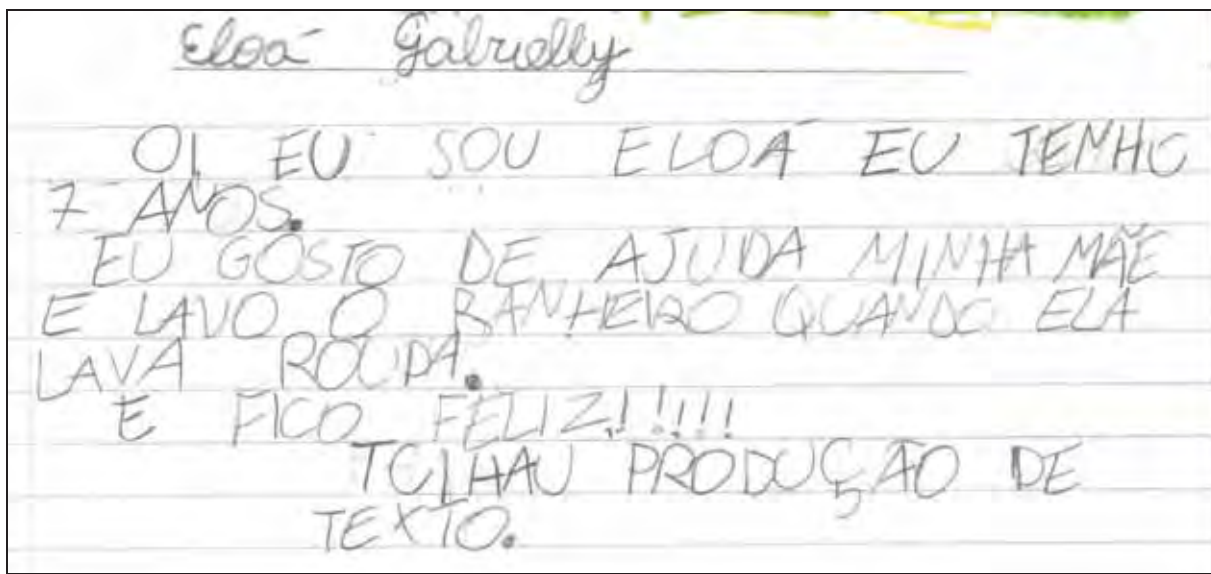 Eloá Gabrielly
OI EU SOU ELOÁ EU TENHO
7 ANOS.
EU GOSTO DE AJUDA MINHA MÃE
E LAVO O BANHEIRO QUANDO ELA
LAVA ROUPA.
E FICO FELIZ!!!!!
TCLHAU PRODUÇÃO DE
TEXTO.